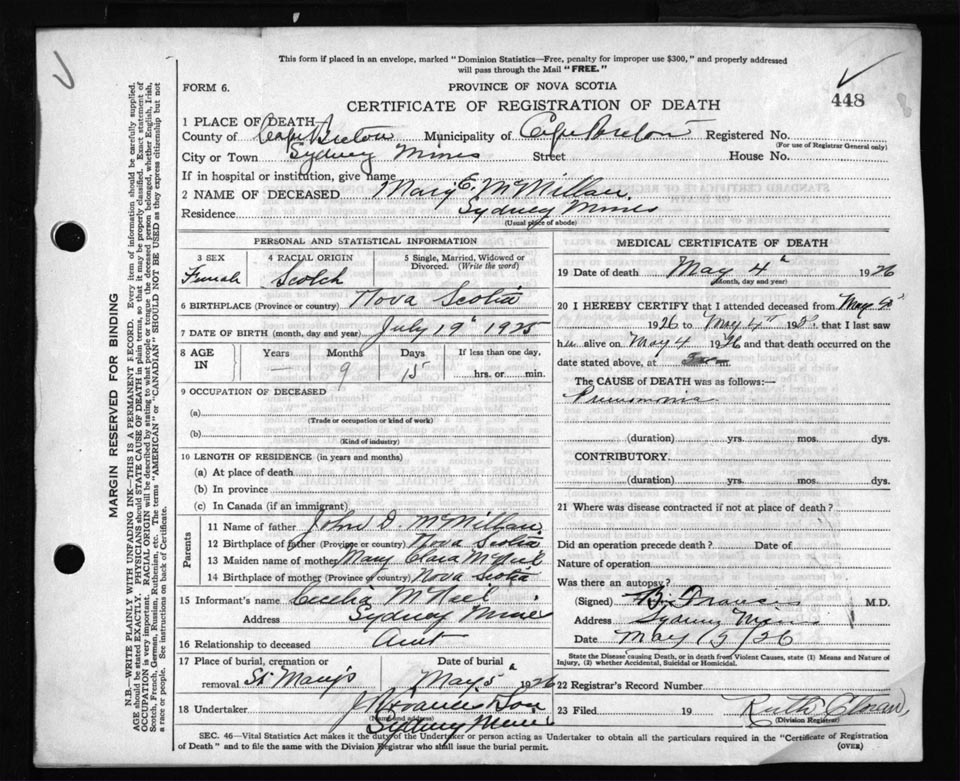 This form if placed in an envelope, marked "Dominion Statistics—Free, penalty for improper use $300," and properly addressed
will pass through the Mail "FREE."
FORM 6.
PROVINCE OF NOVA SCOTIA
CERTIFICATE OF REGISTRATION OF DEATH
448
1 PLACE OF DEATH
County of Cape Breton Municipality of Cape Breton Registered No.
(For use of Registrar General only)
City or Town Sydney Mines Street House No.
If in hospital or institution, give name
2 NAME OF DECEASED Mary E. McMillan
Residence Sydney Mines
(Usual place of abode)
PERSONAL AND STATISTICAL INFORMATION
3 SEX Female
4 RACIAL ORIGIN Scotch
5 Single, Married, Widowed or Divorced. (Write the word)
6 BIRTHPLACE (Province or country) Nova Scotia
7 DATE OF BIRTH (month, day and year) July 19th 1925
8 AGE IN Years — Months 9 Days 15 If less than one day, hrs. or min.
9 OCCUPATION OF DECEASED
(a)
(Trade or occupation or kind of work)
(b)
(Kind of industry)
10 LENGTH OF RESIDENCE (in years and months)
(a) At place of death
(b) In province
(c) In Canada (if an immigrant)
Parents
11 Name of father John D. McMillan
12 Birthplace of father (Province or country) Nova Scotia
13 Maiden name of mother Mary Clara McNeil
14 Birthplace of mother (Province or country) Nova Scotia
15 Informant's name Cecelia McNeil
Address Sydney Mines
16 Relationship to deceased Aunt
17 Place of burial, cremation or removal St Mary's
Date of burial May 5th 1926
18 Undertaker J. Francis & Son
(Name and address)
Sydney Mines
MEDICAL CERTIFICATE OF DEATH
19 Date of death May 4th 1926
(Month, day and year)
20 I HEREBY CERTIFY that I attended deceased from May
1926 to May 4th 19 that I last saw
h alive on May 4 1926 and that death occurred on the
date stated above, at m.
The CAUSE of DEATH was as follows:—
Pneumonia
(duration) yrs. mos. dys.
CONTRIBUTORY.
(duration) yrs. mos. dys.
21 Where was disease contracted if not at place of death?
Did an operation precede death? Date of
Nature of operation
Was there an autopsy?
(Signed) B. Francis M.D.
Address Sydney Mines
Date May 26
State the Disease causing Death, or in death from Violent Causes, state (1) Means and Nature of
Injury, (2) whether Accidental, Suicidal or Homicidal.
22 Registrar's Record Number
23 Filed 19 Ruth
(Division Registrar)
SEC. 46—Vital Statistics Act makes it the duty of the Undertaker or person acting as Undertaker to obtain all the particulars required in the "Certificate of Registration
of Death" and to file the same with the Division Registrar who shall issue the burial permit.
(OVER)
MARGIN RESERVED FOR BINDING
N.B.—WRITE PLAINLY WITH UNFADING INK—THIS IS A PERMANENT RECORD. Every item of information should be carefully supplied.
AGE should be stated EXACTLY. PHYSICIANS should STATE CAUSE OF DEATH in plain terms, so that it may be properly classified. Exact statement of
OCCUPATION is very important. RACIAL ORIGIN will be described by stating to what people or tongue the deceased person belonged, whether English, Irish,
Scotch, French, German, Russian, Ruthenian, etc. The terms "AMERICAN" or "CANADIAN" SHOULD NOT BE USED as they express citizenship but not
a race or people. See instructions on back of Certificate.